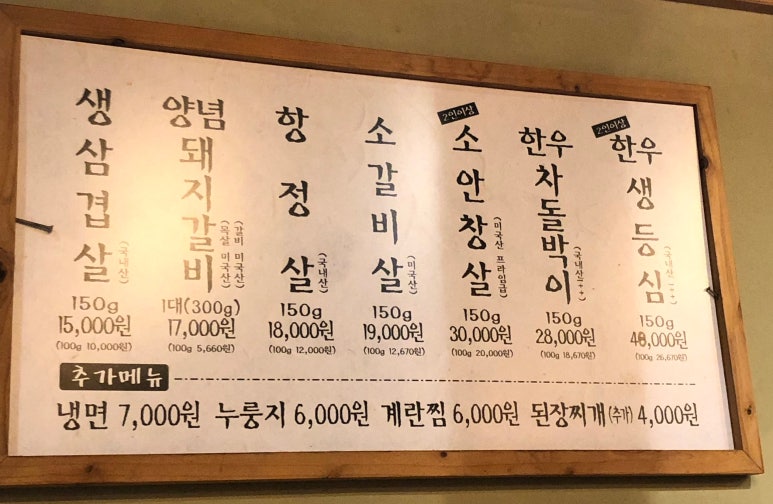 생삼겹살 (국내산)
150g
15,000원
(100g 10,000원)
양념돼지갈비 (갈비 미국산) (목살 미국산)
1대(300g)
17,000원
(100g 5,660원)
항정살 (국내산)
150g
18,000원
(100g 12,000원)
소갈비살 (미국산)
150g
19,000원
(100g 12,670원)
2인이상
소안창살 (미국산 프라임급)
150g
30,000원
(100g 20,000원)
한우차돌박이 (국내산1++)
150g
28,000원
(100g 18,670원)
2인이상
한우생등심 (국내산1++)
150g
48,000원
(100g 26,670원)
추가메뉴
냉면 7,000원 누룽지 6,000원 계란찜 6,000원 된장찌개(추가) 4,000원